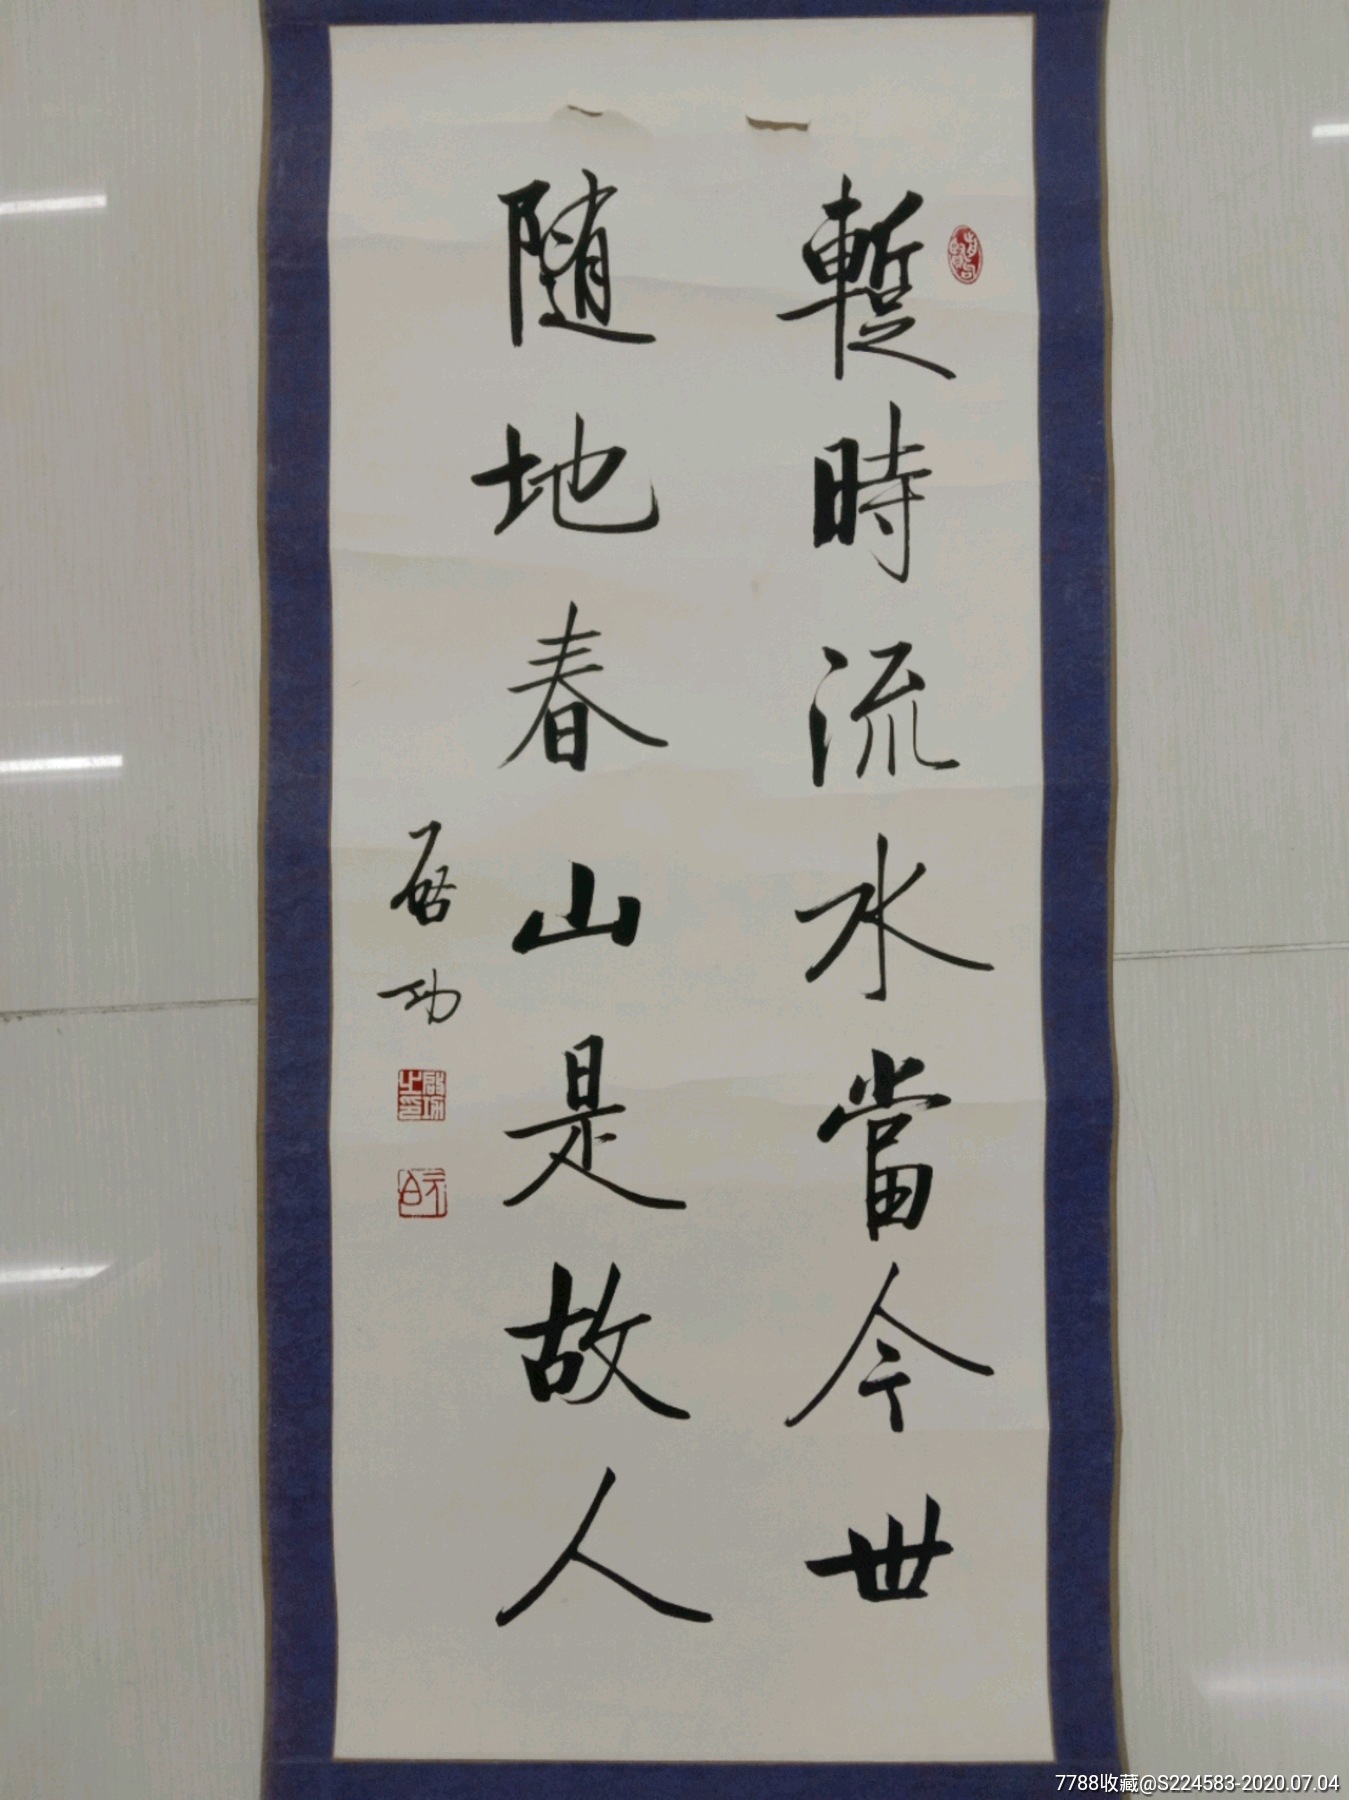 暫時流水當今世
随地春山是故人
启功
啟功之印
7788收藏@S224583-2020.07.04